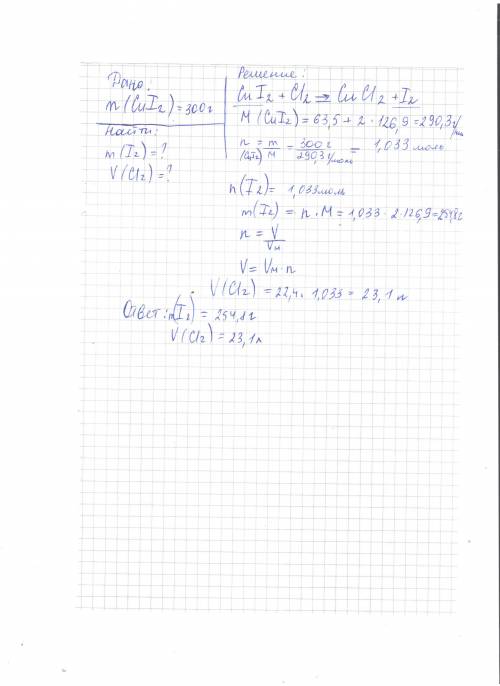 Дано:
n(CuI₂)=300г
Найти:
m(I₂)=?
V(Cl₂)=?
Решение:
CuI₂+Cl₂⇒CuCl₂+I₂
M(CuI₂)=63,5+2·126,9=290,3г/
n(CuI₂)=m/M=300г/290,3г/моль=1,033моль
n(I₂)=1,033моль
m(I₂)=n·M=1,033·2·126,9=
n=V/Vм
V=Vм·n
V(Cl₂)=22,4·1,033=23,1л
Ответ: m(I₂)=254,8г
V(Cl₂)=23,1л